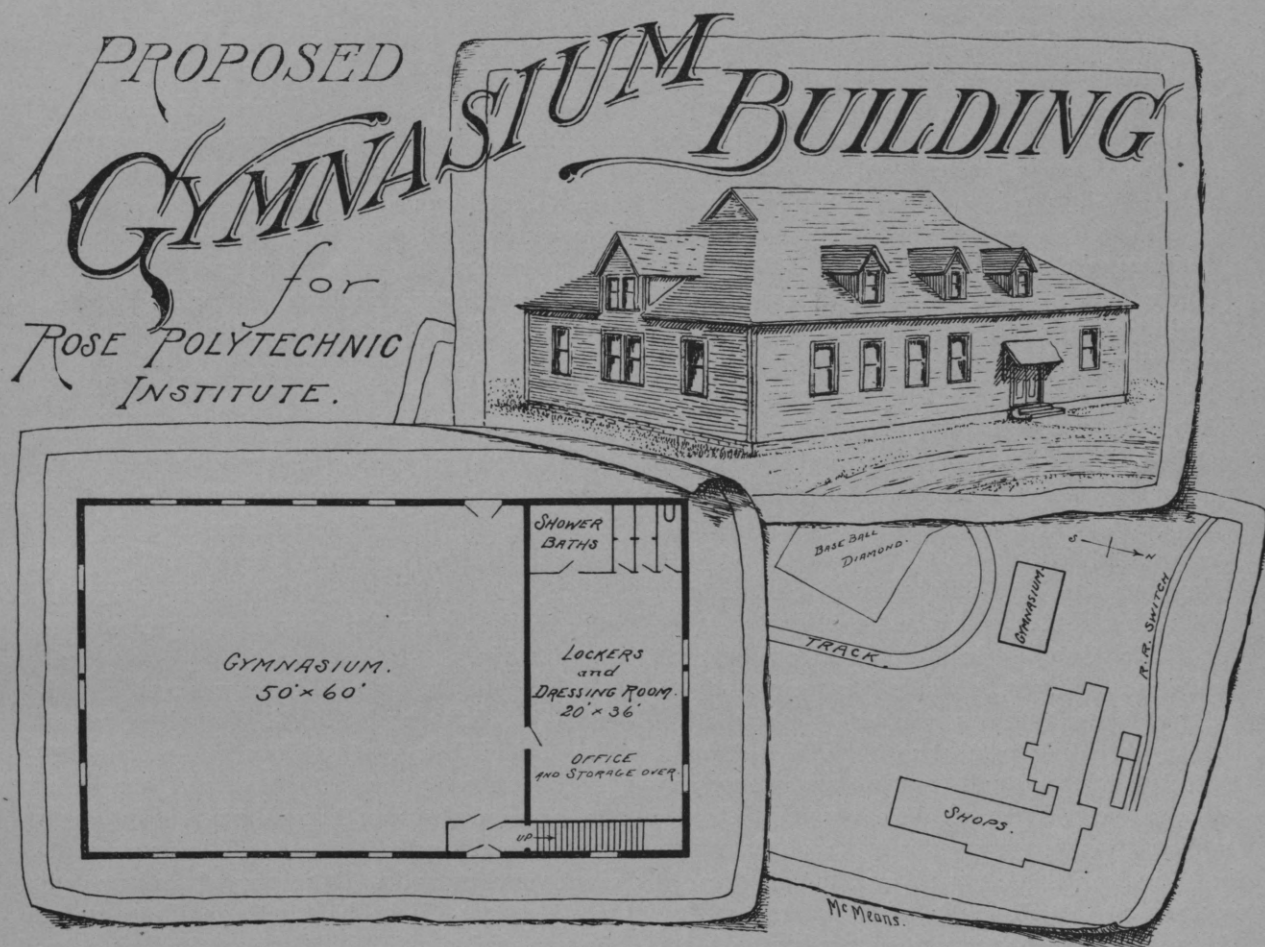 PROPOSED
GYMNASIUM BUILDING
for
ROSE POLYTECHNIC
INSTITUTE.
GYMNASIUM.
50' × 60'
SHOWER
BATHS
LOCKERS
and
DRESSING ROOM.
20' × 36'
OFFICE
AND STORAGE OVER.
UP
BASE BALL
DIAMOND.
TRACK.
S N
GYMNASIUM.
R. R. SWITCH
SHOPS.
McMeans.